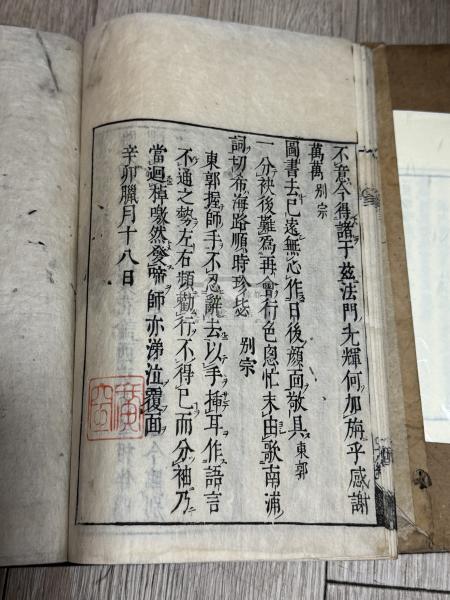 不意今得諸于茲法門光輝何加旃乎感謝
萬萬 別宗
圖書去已遠無心作日後顏面敬具 東郭
一分袂後難為再會行色悤忙未由歌南浦
詞切布海路順時珍毖 別宗
東郭握師手不忍辭去以手揷耳作語言
不通之勢左右頻勸行不得已而分袖乃
當迴棹噭然發啼師亦涕泣覆面
辛卯臘月十八日